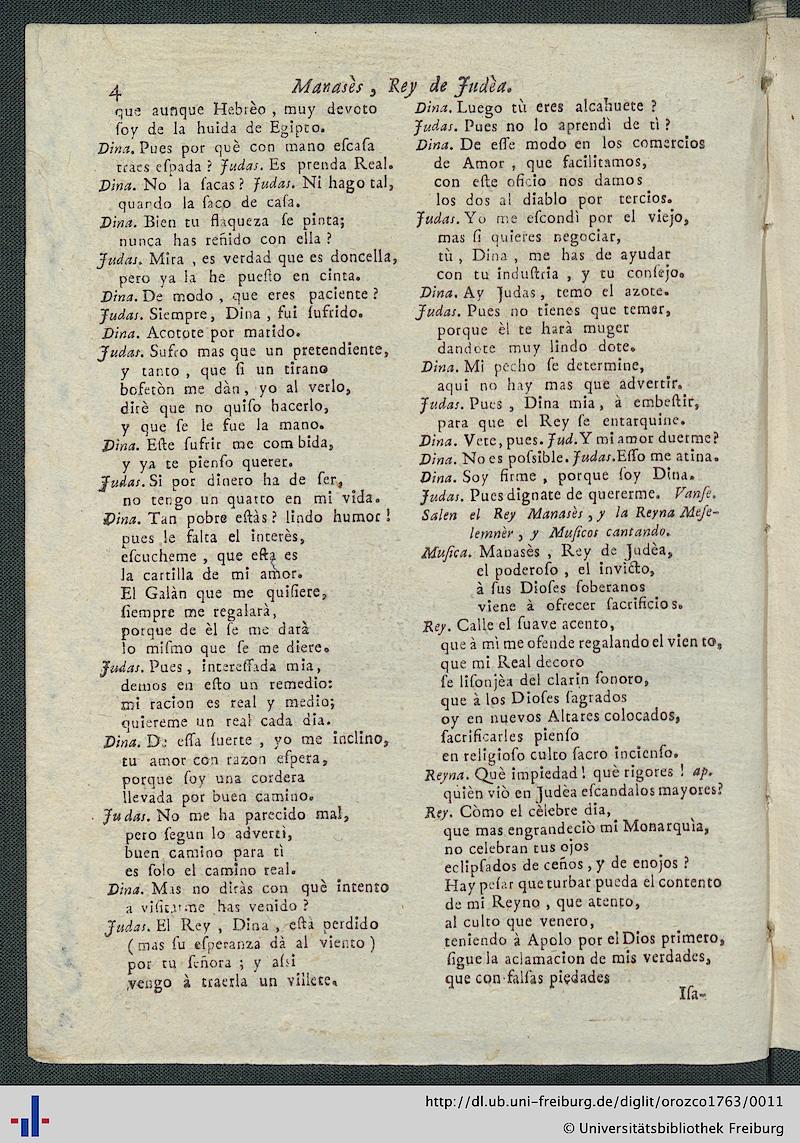 4
Manasès, Rey de Judèa.
que aunque Hebrèo, muy devoto
ſoy de la huida de Egipto.
Dina. Pues por què con mano eſcaſa
traes eſpada? Judas. Es prenda Real.
Dina. No la ſacas? Judas. Ni hago tal,
quando la ſaco de caſa.
Dina. Bien tu flaqueza ſe pinta;
nunca has reñido con ella?
Judas. Mira, es verdad que es doncella,
pero ya la he pueſto en cinta.
Dina. De modo, que eres paciente?
Judas. Siempre, Dina, fui ſufrido.
Dina. Acotote por marido.
Judas. Sufro mas que un pretendiente,
y tanto, que ſi un tirano
bofetòn me dàn, yo al verlo,
dirè que no quiſo hacerlo,
y que ſe le fue la mano.
Dina. Eſte ſufrir me combida,
y ya te pienſo querer.
Judas. Si por dinero ha de ſer,
no tengo un quarto en mi vida.
Dina. Tan pobre eſtàs? lindo humor!
pues le falta el interès,
eſcucheme, que eſta es
la cartilla de mi amor.
El Galàn que me quiſiere,
ſiempre me regalarà,
porque de èl ſe me darà
lo miſmo que ſe me diere.
Judas. Pues, intereſſada mia,
demos en eſto un remedio:
mi racion es real y medio;
quiereme un real cada dia.
Dina. De eſſa ſuerte, yo me inclino,
tu amor con razon eſpera,
porque ſoy una cordera
llevada por buen camino.
Judas. No me ha parecido mal,
pero ſegun lo advertì,
buen camino para tì
es ſolo el camino real.
Dina. Mas no diràs con què intento
a viſitarme has venido?
Judas. El Rey, Dina, eſtà perdido
(mas ſu eſperanza dà al viento)
por tu ſeñora; y aſsi
vengo à traerla un villete.
Dina. Luego tù eres alcahuete?
Judas. Pues no lo aprendì de tì?
Dina. De eſſe modo en los comercios
de Amor, que facilitamos,
con eſte oficio nos damos
los dos al diablo por tercios.
Judas. Yo me eſcondì por el viejo,
mas ſi quieres negociar,
tù, Dina, me has de ayudar
con tu induſtria, y tu conſejo.
Dina. Ay Judas, temo el azote.
Judas. Pues no tienes que temer,
porque èl te harà muger
dandote muy lindo dote.
Dina. Mi pecho ſe determine,
aqui no hay mas que advertir.
Judas. Pues, Dina mia, à embeſtir,
para que el Rey ſe entarquine.
Dina. Vete, pues. Jud. Y mi amor duerme?
Dina. No es poſsible. Judas. Eſſo me atina.
Dina. Soy firme, porque ſoy Dina.
Judas. Pues dignate de quererme. Vanſe.
Salen el Rey Manasès, y la Reyna Meſe-
lemnèr, y Muſicos cantando.
Muſica. Manasès, Rey de Judèa,
el poderoſo, el invicto,
à ſus Dioſes ſoberanos
viene à ofrecer ſacrificios.
Rey. Calle el ſuave acento,
que à mì me ofende regalando el viento,
que mi Real decoro
ſe liſonjèa del clarin ſonoro,
que à los Dioſes ſagrados
oy en nuevos Altares colocados,
ſacrificarles pienſo
en religioſo culto ſacro incienſo.
Reyna. Què impiedad! què rigores! ap.
quièn viò en Judèa eſcandalos mayores?
Rey. Còmo el cèlebre dia,
que mas engrandeciò mi Monarquìa,
no celebran tus ojos
eclipſados de ceños, y de enojos?
Hay peſar que turbar pueda el contento
de mi Reyno, que atento,
al culto que venero,
teniendo à Apolo por el Dios primero,
ſigue la aclamacion de mis verdades,
que con falſas piedades
Iſa-
http://dl.ub.uni-freiburg.de/diglit/orozco1763/0011
© Universitätsbibliothek Freiburg